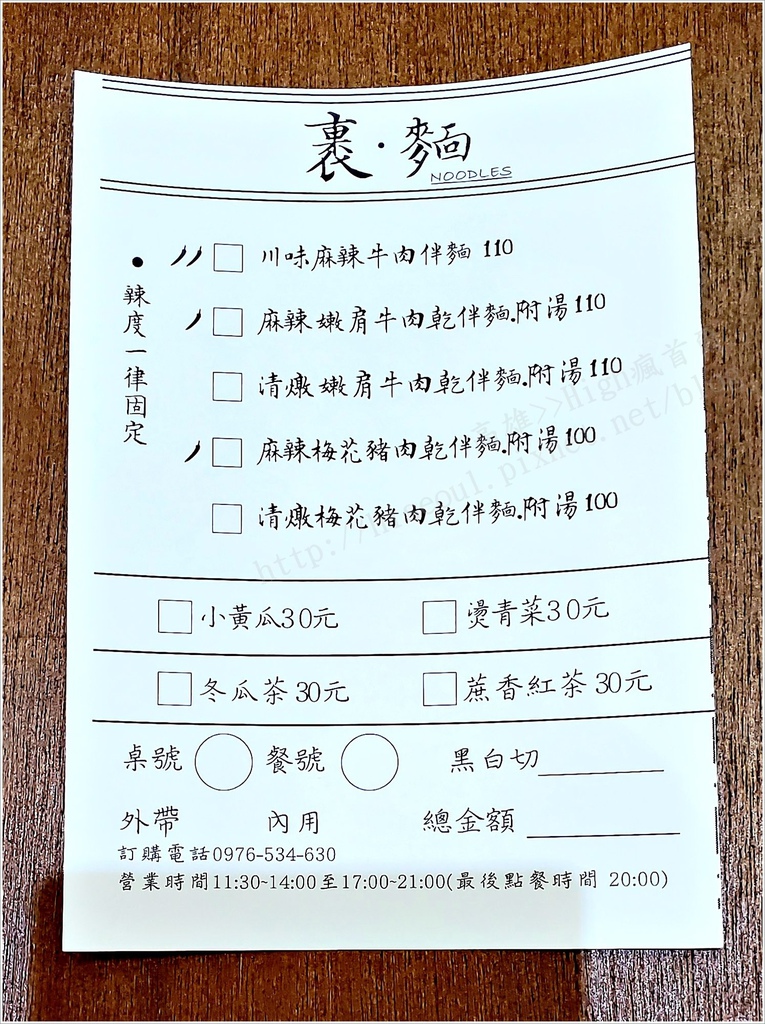 裹·麵
NOODLES
●辣度一律固定
川味麻辣牛肉伴麵 110
麻辣嫩肩牛肉乾伴麵.附湯110
清燉嫩肩牛肉乾伴麵.附湯110
麻辣梅花豬肉乾伴麵.附湯100
清燉梅花豬肉乾伴麵.附湯100
小黃瓜30元 燙青菜30元
冬瓜茶30元 蔗香紅茶30元
桌號 餐號 黑白切
外帶 內用 總金額
訂購電話0976-534-630
營業時間11:30~14:00至17:00~21:00(最後點餐時間 20:00)